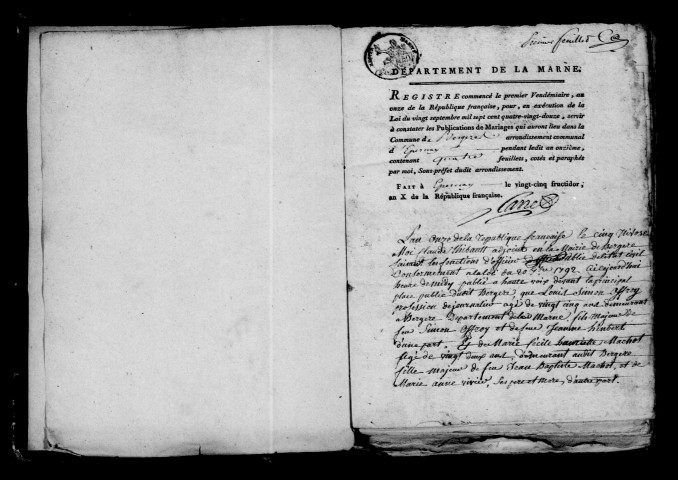 Premier feuillet
DÉPARTEMENT DE LA MARNE.
REGISTRE commencé le premier Vendémiaire, an
onze de la République française, pour, en exécution de la
Loi du vingt septembre mil sept cent quatre-vingt-douze, servir
à constater les Publications de Mariages qui auront lieu dans la
Commune de Bergere arrondissement communal
d'Epernay pendant ledit an onzième,
contenant quatre feuillets, cotés et paraphés
par moi, Sous-préfet dudit arrondissement.
FAIT à Epernay le vingt-cinq fructidor;
an X de la République française.
L'an onze de la Republique française le cinq Nivose
Moi Claude Thibault adjoint en la Mairie de Bergere
faisant les fonctions d'officier public de l'etat civil
Conformement a la loi du 20 7bre 1792 Ce jourd'hui
heure de midy publié a haute voix devant la principal
place publique dudit Bergere que Louis Simon Offroy
profession de journalier agé de vingt cinq ans demeurant
a Bergere Departement de la Marne, fils majeur de
feu Simon Offroy et de feue jeanne hubert
d'une part. Et de Marie Cecile henriette Machet
agé de vingt deux ans, demeurant audit Bergere
fille majeur de feu Jean Baptiste Machet, et de
Marie anne vivien, ses pere et mere, d'autre part.